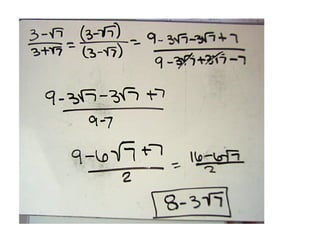 3-√7/3+√7 = (3-√7)/(3-√7) = 9-3√7-3√7+7/9-3√7+3√7-7
9-3√7-3√7+7/9-7
9-6√7+7/2 = 16-6√7/2
8-3√7